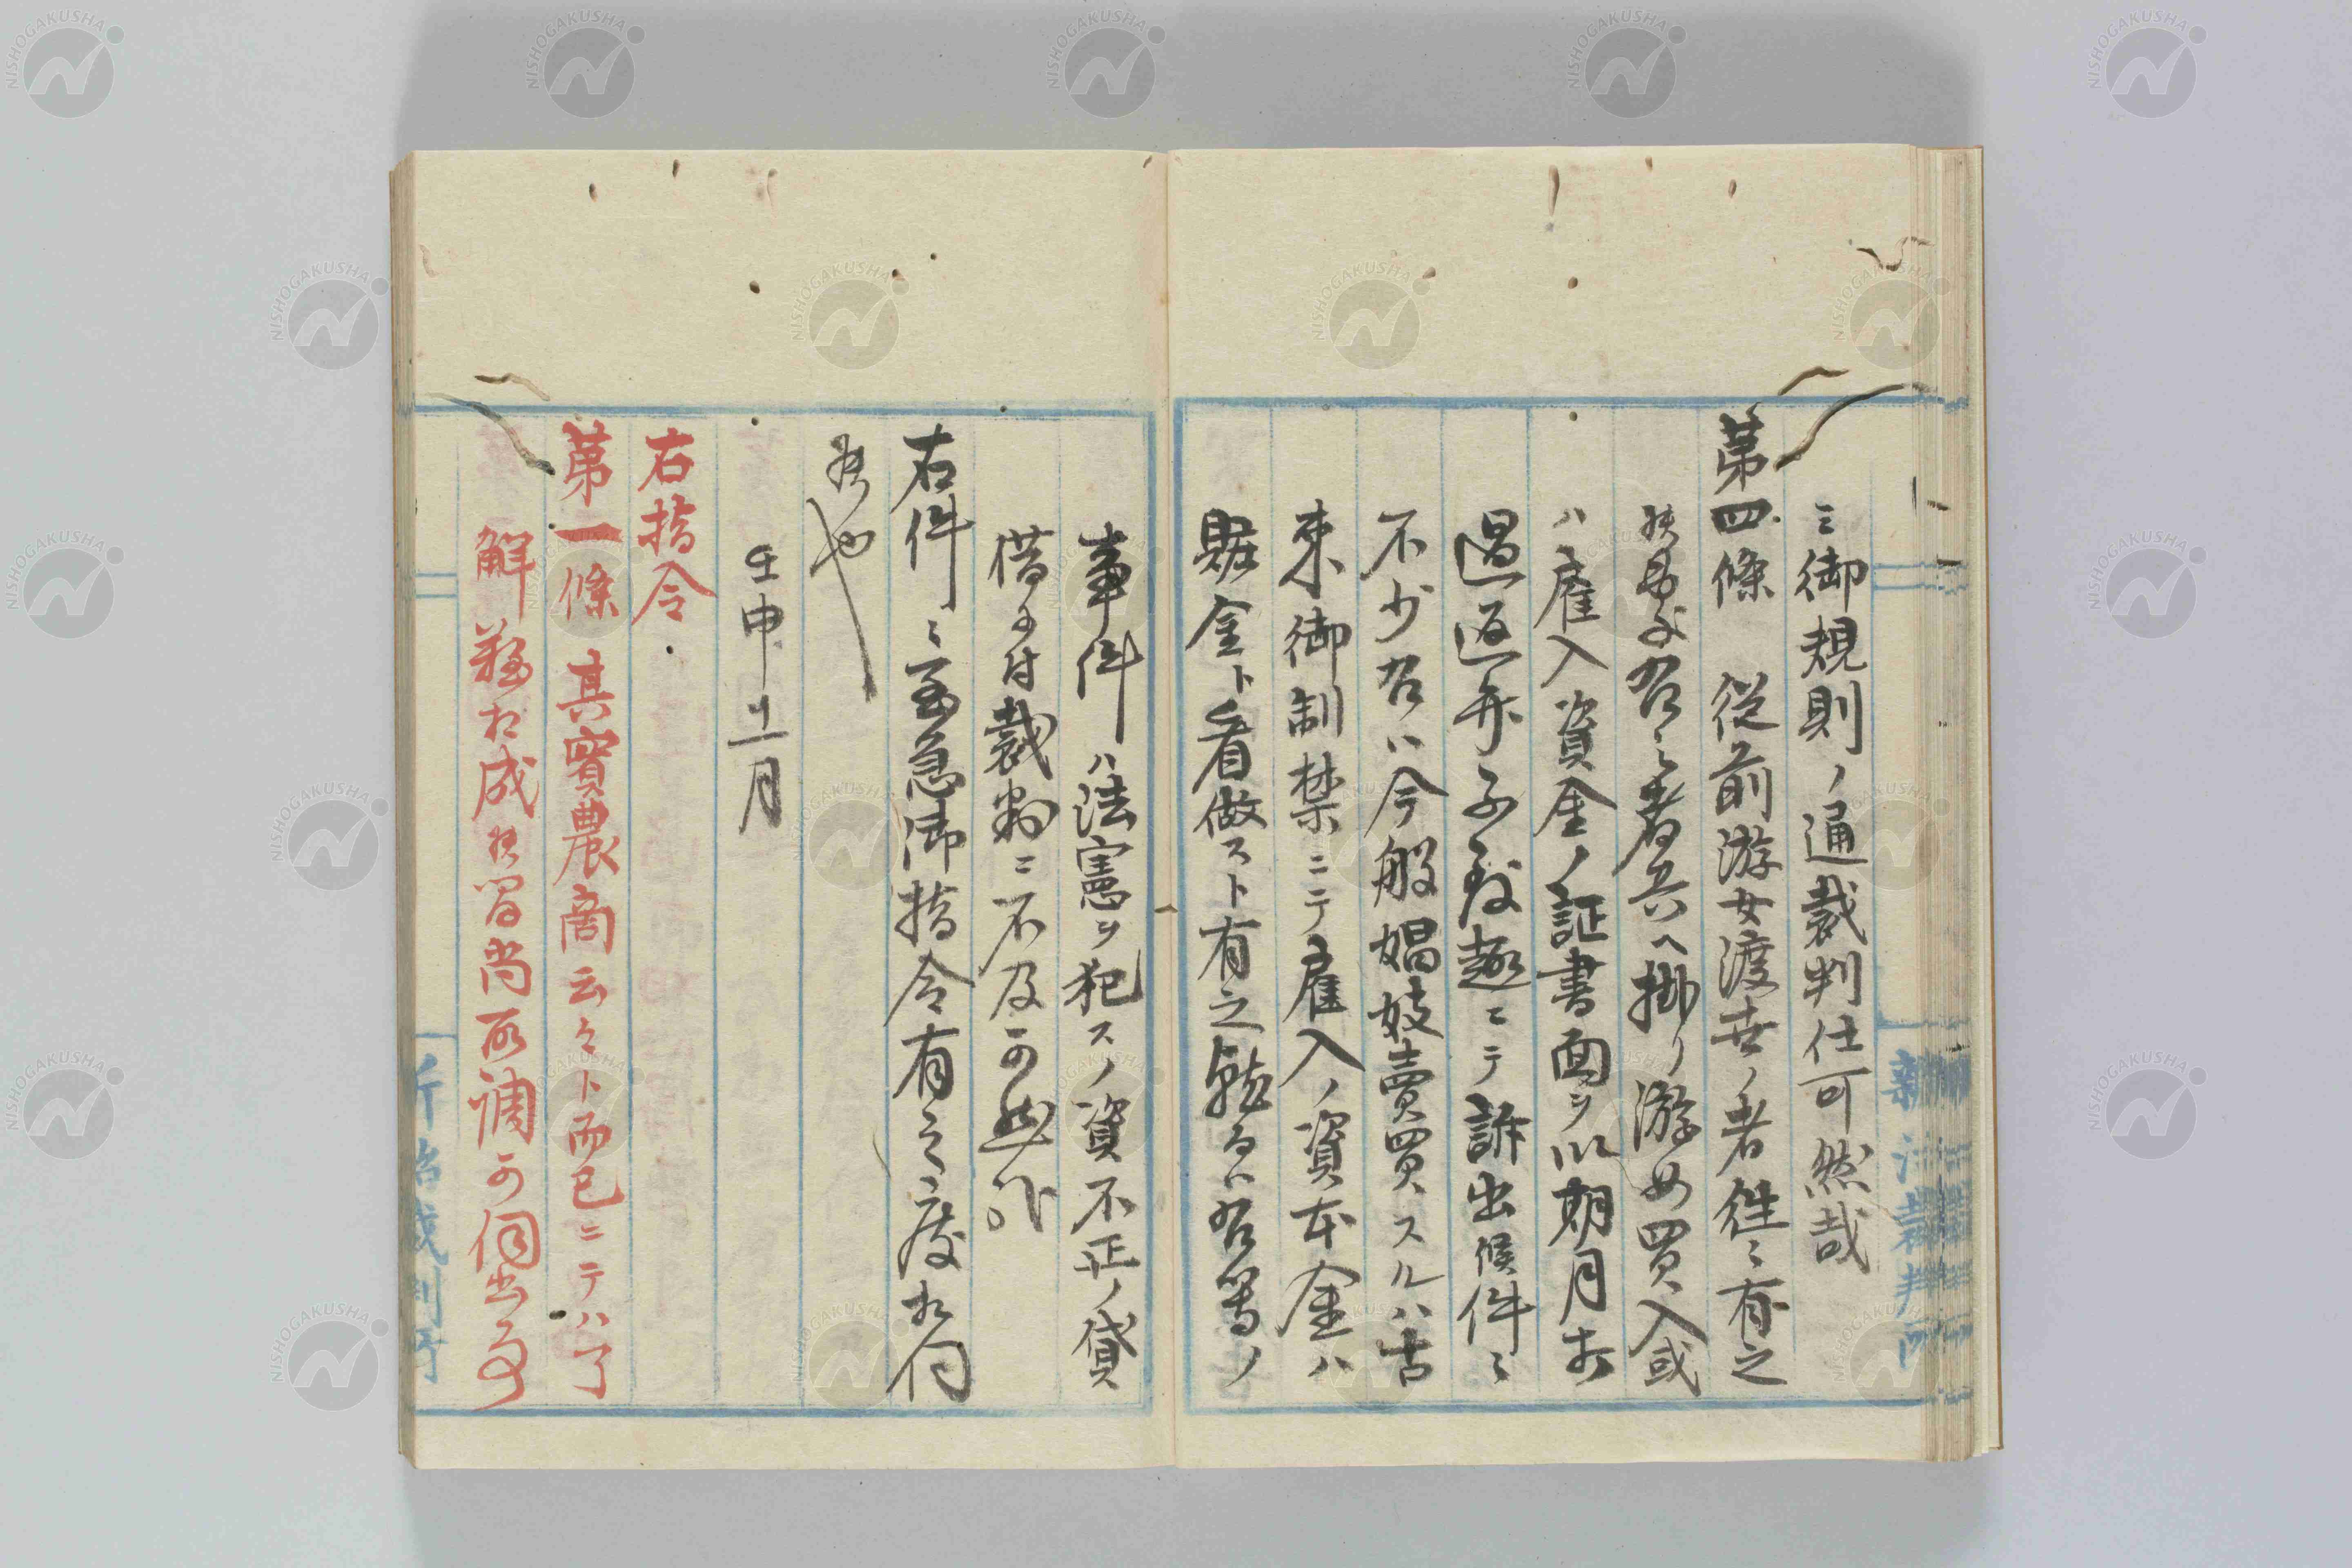 ニ御規則ノ通裁判仕可然哉
第四條 従前游女渡世ノ者往々有之
候処右之者共ヘ掛リ游女買入或
ハ雇入資金ノ証書面ヲ以期月お
過返弁不致趣ニテ訴出候件々
不少右ハ今般娼妓売買スルハ古
来御制禁ニテ雇入ノ資本金ハ
賍金ト看做スト有之就テハ右等ノ
事件ハ法憲ヲ犯スノ資不正ノ貸
借ニ付裁判ニ不及可然哉
右件々至急御指令有之度相伺
候也
壬申十一月
右指令
第一條 其實農商云々ト而已ニテハ了
解難相成候間尚取調可伺出事
新治裁判所